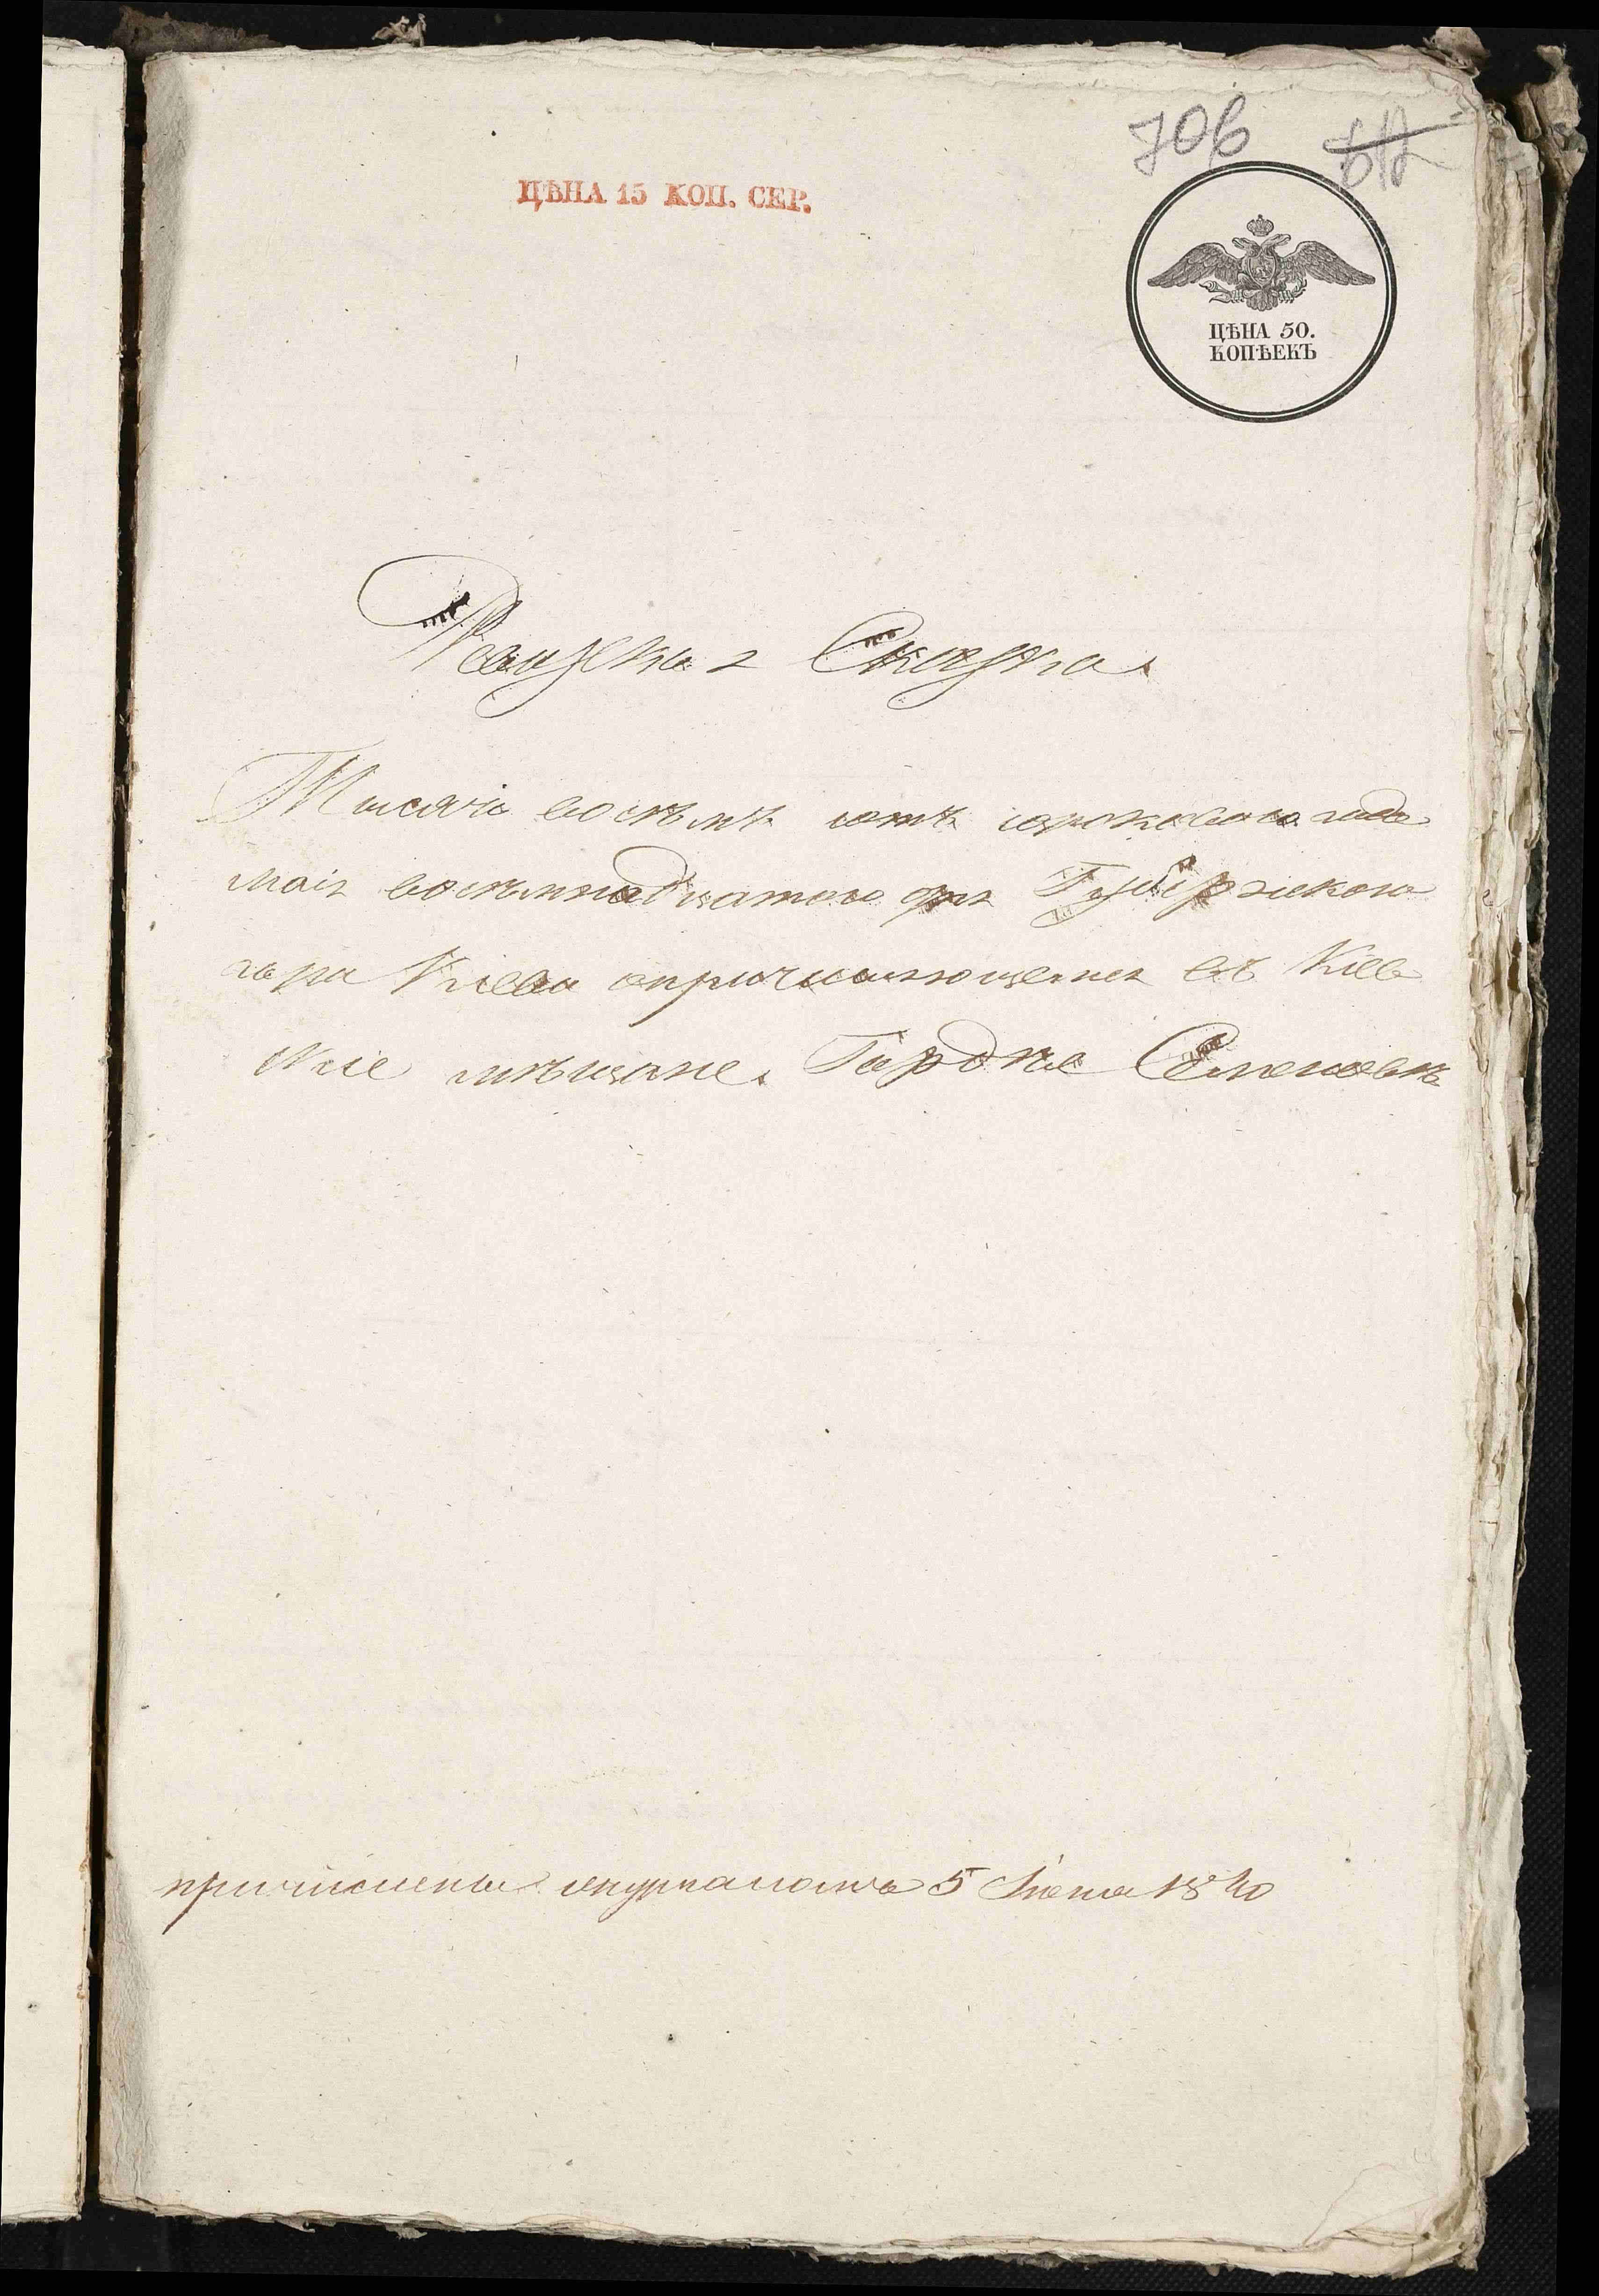 706
ЦѢНА 15 КОП. СЕР.
ЦѢНА 50.
КОПѢЕКЪ
Ревизская Сказка.
Тысяча восѣмъ сотъ сороковаго года
маія восѣмнадцатого дня Губернского
города Кіева о причисляющемся въ Кіев
скіе мѣщане. Гордѣе Семеновѣ
причислены журналомъ 5 Іюня 1840